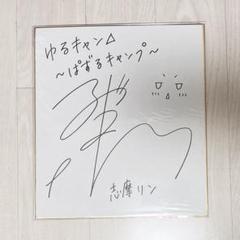 ゆるキャン△
～ぱずるキャンプ～
志摩リン